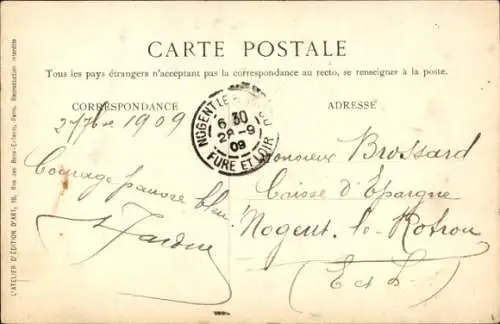 CARTE POSTALE
Tous les pays étrangers n'acceptant pas la correspondance au recto, se renseigner à la poste.
CORRESPONDANCE
27 7bre 1909
Courage pauvre bleu
ADRESSE
Monsieur Brossard
Caisse d'Epargne
Nogent-le-Rotrou
(E et L)
NOGENT LE
6 30
28-9
09
EURE ET LOIR
L'ATELIER D'ÉDITION D'ART, Rue des Paris. Reproduction interdite